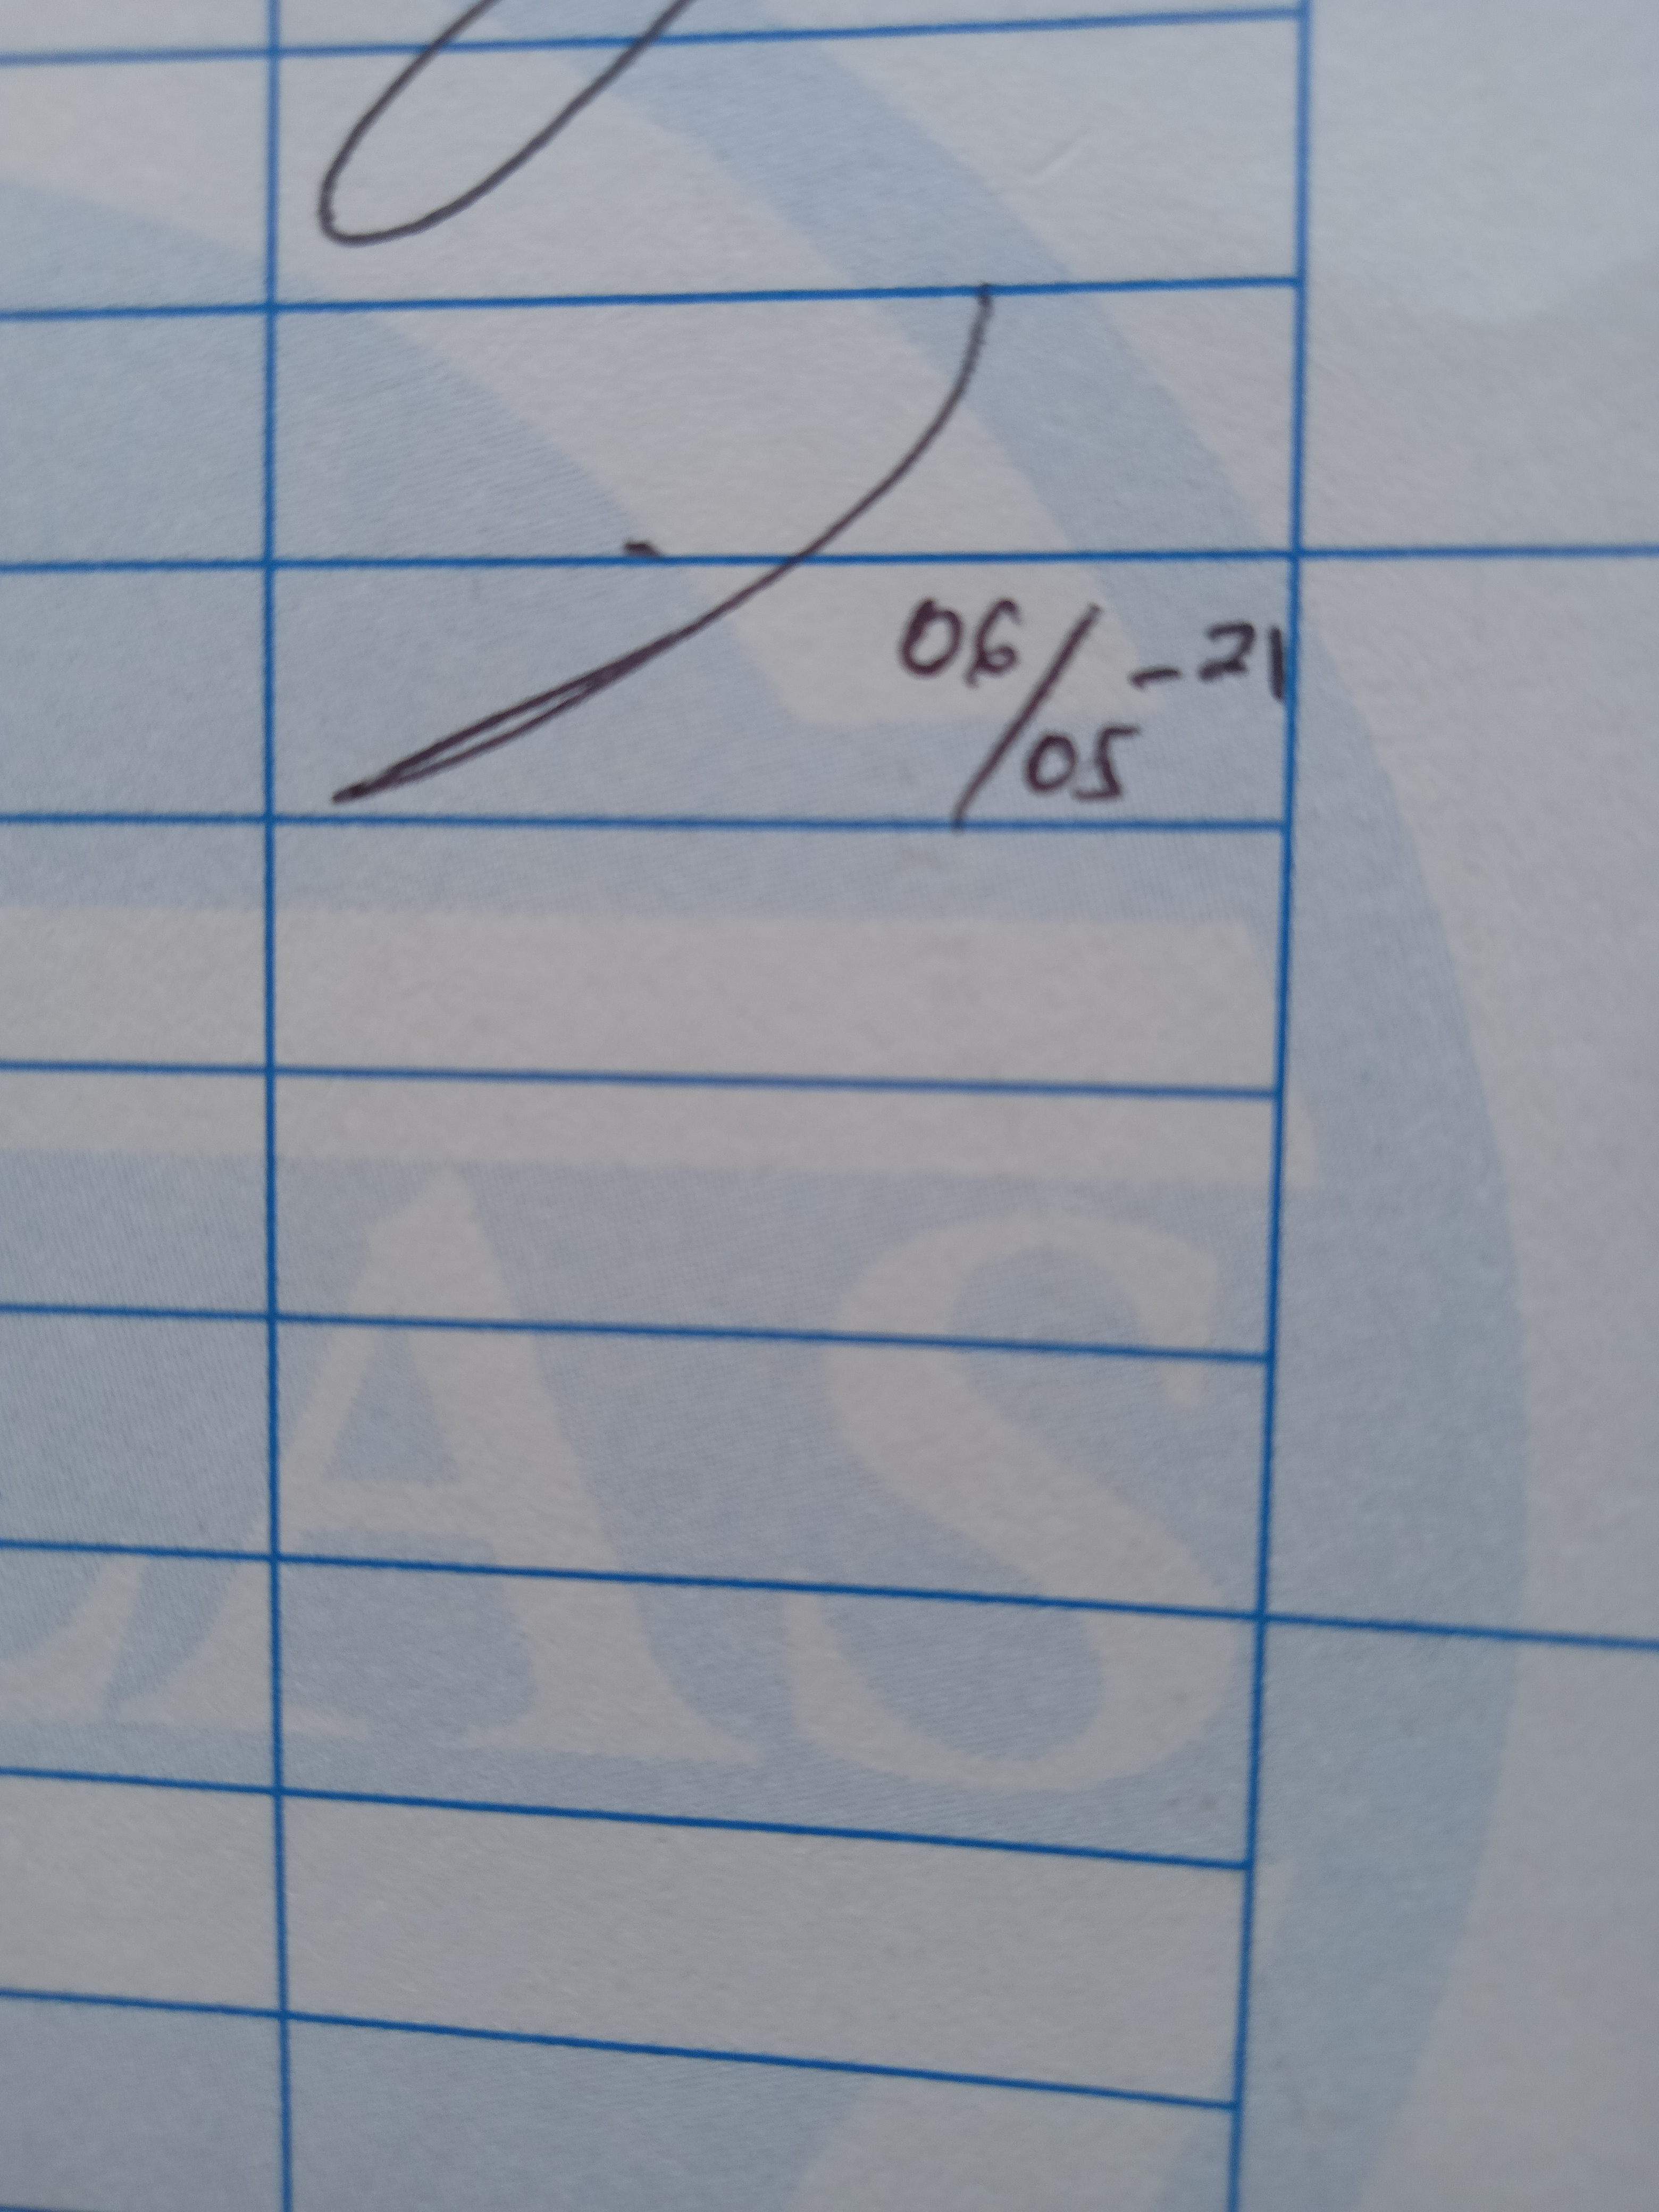 06/05-21
AS